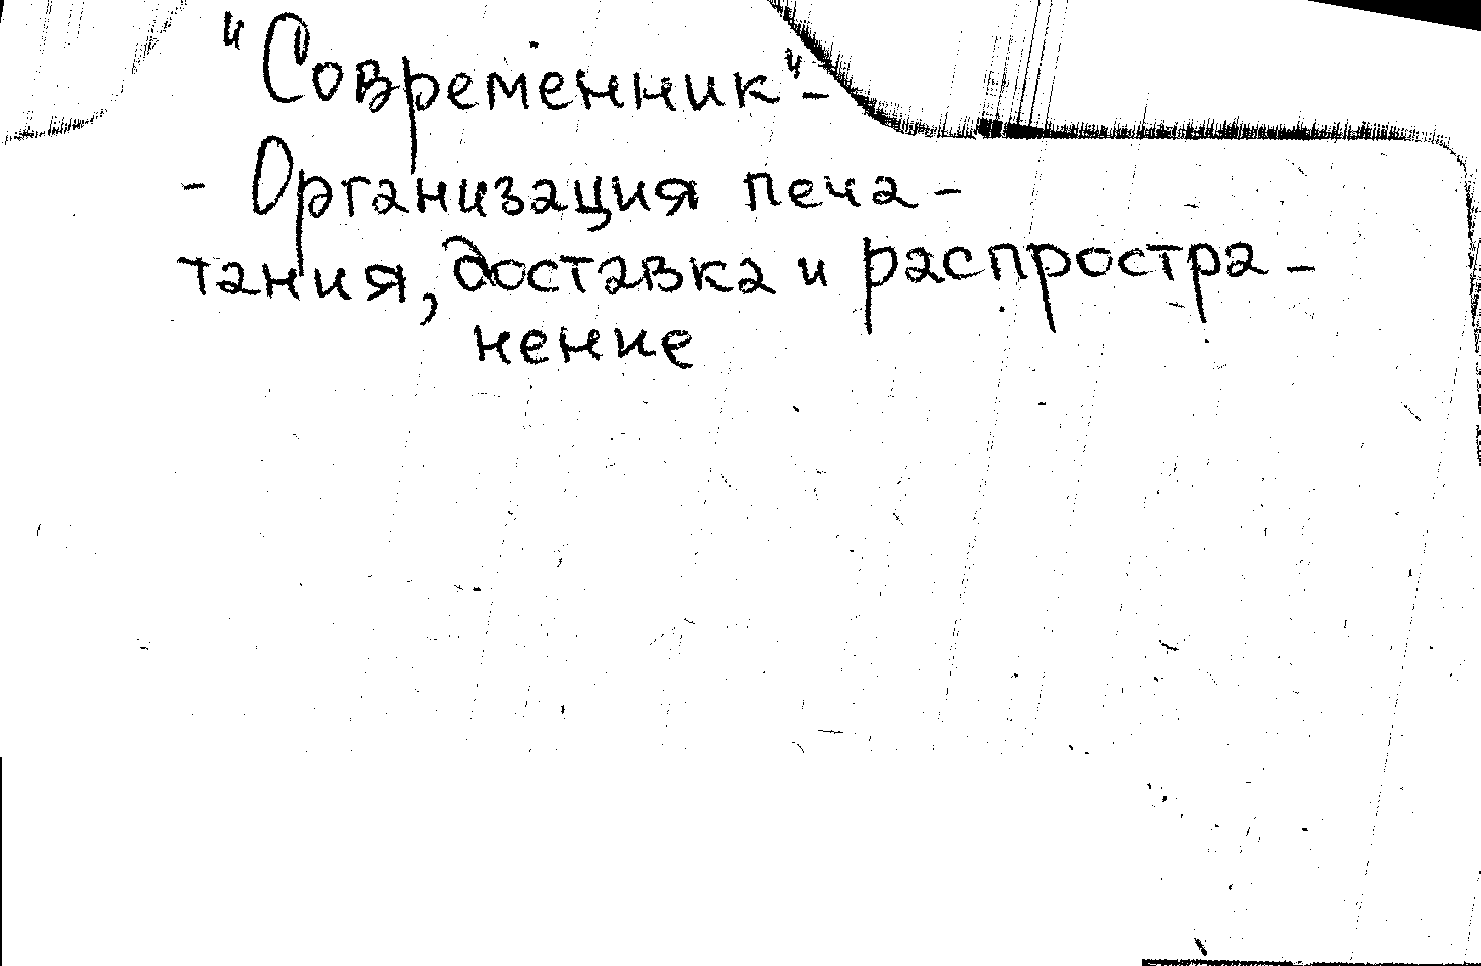 "Современник"-
- Организация печа-
тания, доставка и распростра-
нение